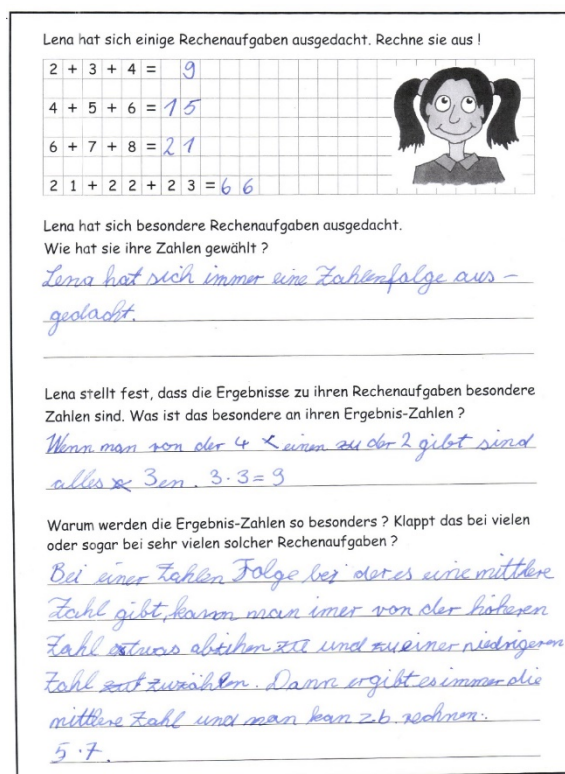 Lena hat sich einige Rechenaufgaben ausgedacht. Rechne sie aus !
2 + 3 + 4 = 9
4 + 5 + 6 = 15
6 + 7 + 8 = 21
21 + 22 + 23 = 66
Lena hat sich besondere Rechenaufgaben ausgedacht.
Wie hat sie ihre Zahlen gewählt ?
Lena hat sich immer eine Zahlenfolge aus-
gedacht.
Lena stellt fest, dass die Ergebnisse zu ihren Rechenaufgaben besondere
Zahlen sind. Was ist das besondere an ihren Ergebnis-Zahlen ?
Wenn man von der 4 einen zu der 2 gibt sind
alles 3en. 3·3=9
Warum werden die Ergebnis-Zahlen so besonders ? Klappt das bei vielen
oder sogar bei sehr vielen solcher Rechenaufgaben ?
Bei einer Zahlen Folge bei der es eine mittlere
Zahl gibt, kann man imer von der höheren
Zahl etwas abzihen und zu einer niedrigeren
Zahl zuzählen. Dann ergibt es immer die
mittlere Zahl und man kan z.b. rechnen:
5·7.